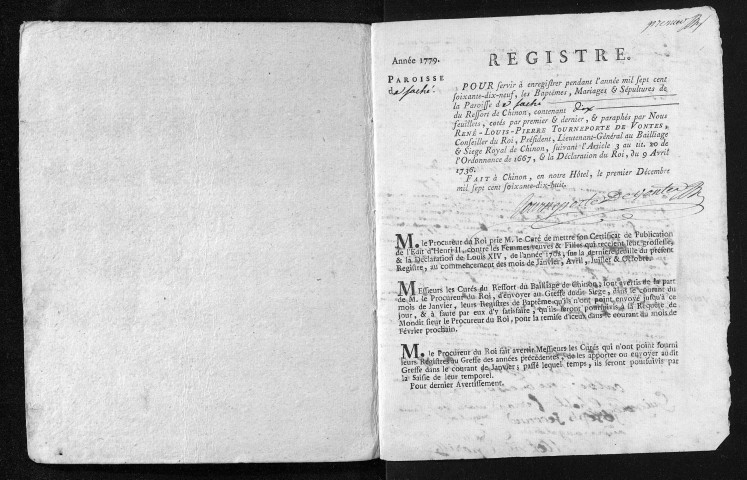 premier
Année 1779.
REGISTRE.
PAROISSE
de saché.
POUR servir à enregistrer pendant l'année mil sept cent
soixante-dix-neuf, les Baptêmes, Mariages & Sépultures de
la Paroisse de saché
du Ressort de Chinon, contenant dix
feuillets, cotés par premier & dernier, & paraphés par Nous
RENÉ-LOUIS-PIERRE TOURNEPORTE DE VONTES,
Conseiller du Roi, Président, Lieutenant-Général au Bailliage
& Siege Royal de Chinon, suivant l'Article 3 au tit. 20 de
l'Ordonnance de 1667, & la Déclaration du Roi, du 9 Avril
1736.
FAIT à Chinon, en notre Hôtel, le premier Décembre
mil sept cent soixante-dix-huit.
Tourneporte De Vontes
M. le Procureur du Roi prie M. le Curé de mettre son Certificat de Publication
de l'Edit d'Henri II, contre les Femmes veuves & Filles qui recelent leur grossesse,
& la Déclaration de Louis XIV, de l'année 1708, sur la derniere feuille du présent
Registre, au commencement des mois de Janvier, Avril, Juillet & Octobre.
MESSIEURS les Curés du Ressort du Bailliage de Chinon, sont avertis de la part
de M. le Procureur du Roi, d'envoyer au Greffe dudit Siege, dans le courant du
mois de Janvier, leurs Registres de Baptême qu'ils n'ont point envoyé jusqu'à ce
jour, & à faute par eux d'y satisfaire, qu'ils seront poursuivis à la Requête de
Mondit sieur le Procureur du Roi, pour la remise d'iceux dans le courant du mois de
Février prochain.
M. le Procureur du Roi fait avertir Messieurs les Curés qui n'ont point fourni
leurs Registres au Greffe des années précédentes, de les apporter ou envoyer audit
Greffe dans le courant de Janvier; passé lequel temps, ils seront poursuivis par
la Saisie de leur temporel.
Pour dernier Avertissement.